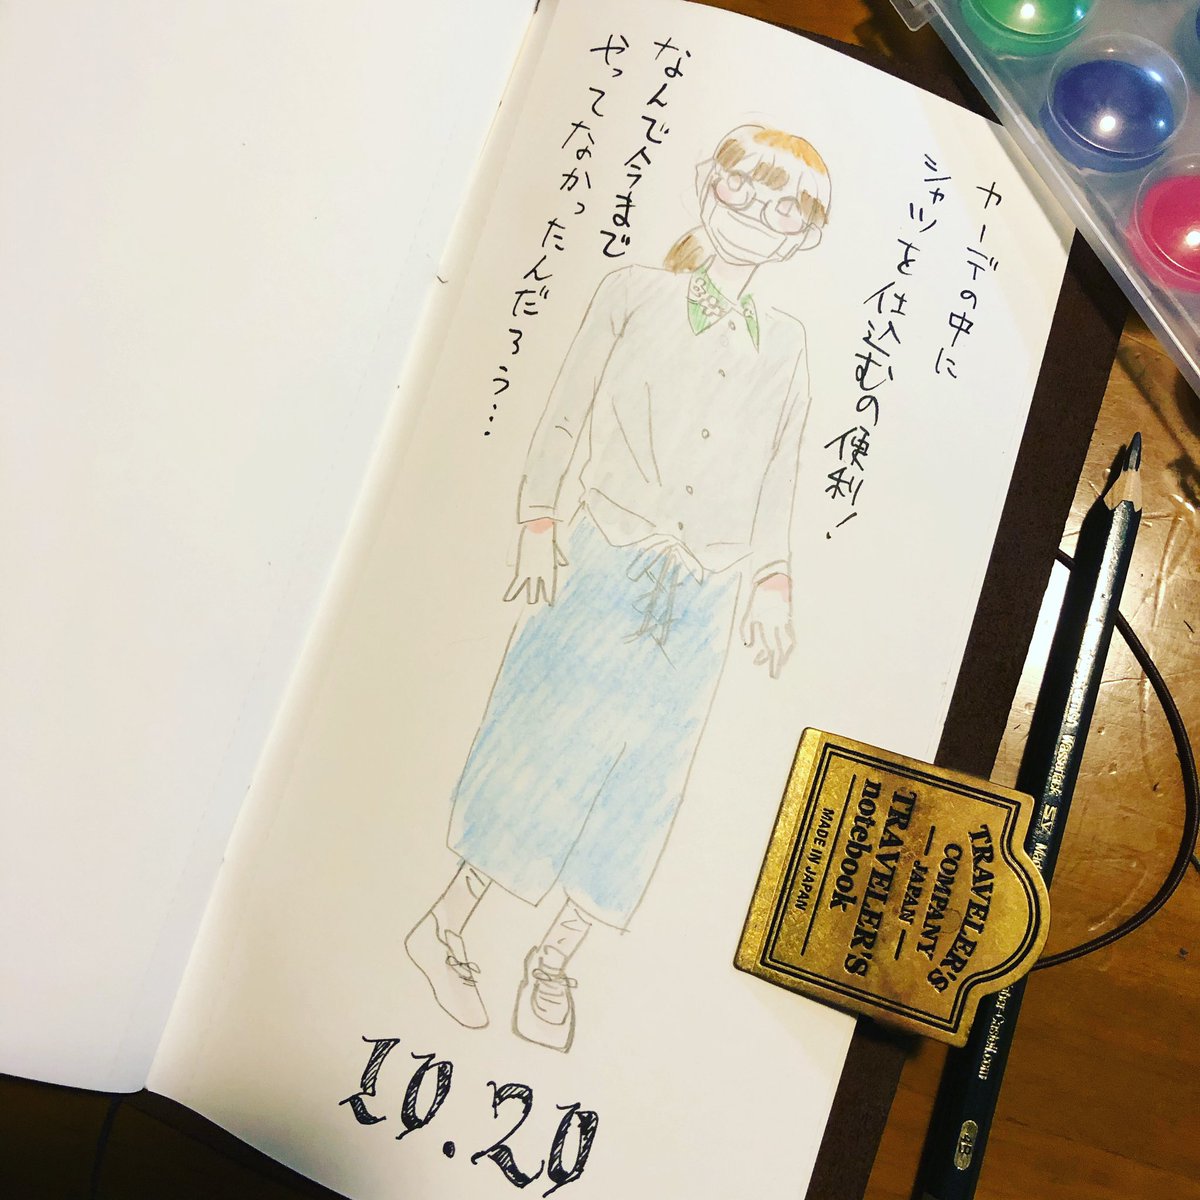 カーデの中に
シャツを仕込むの便利!
なんで今まで
やってなかったんだろう…
10.20
TRAVELER'S
COMPANY
JAPAN
TRAVELER'S
notebook
MADE IN JAPAN
Faber-Castell.com
4B